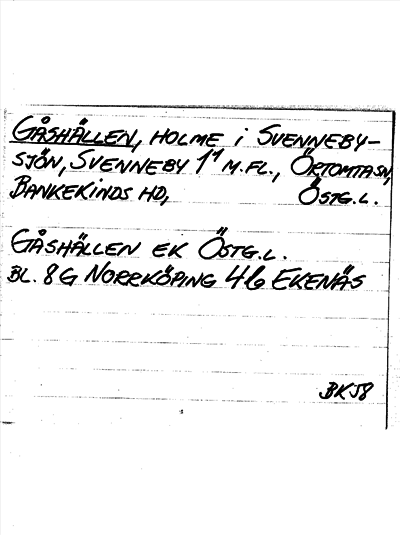 GÅSHÄLLEN, HOLME i SVENNEBY-
SJÖN, SVENNEBY 1¹ M.FL., ÖRTOMTA SN,
BANKEKINDS HD, ÖSTG.L.
GÅSHÄLLEN EK ÖSTG.L.
BL. 8G NORRKÖPING 4b EKENÄS
BK58